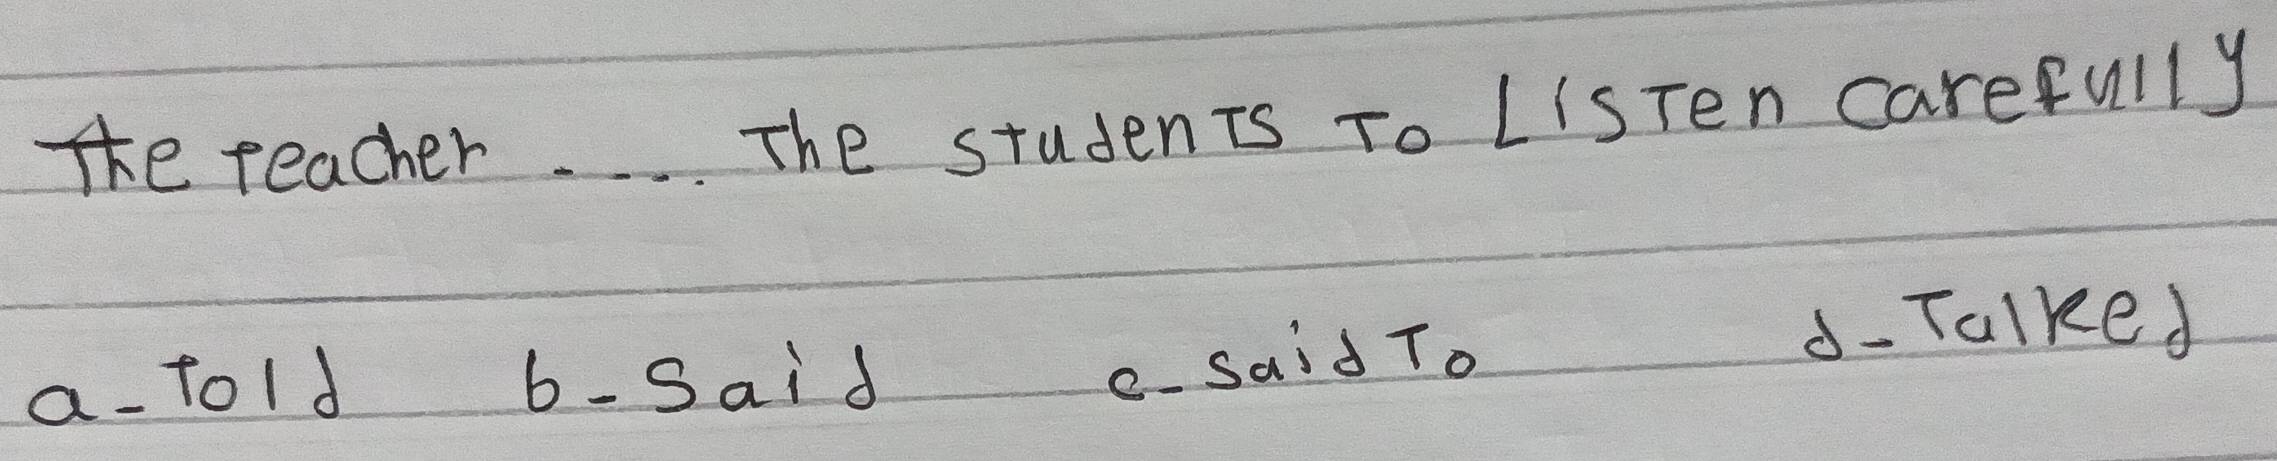 The teacher ..... The students To Listen carefully
a-Told b-Said c-said To d-Talked